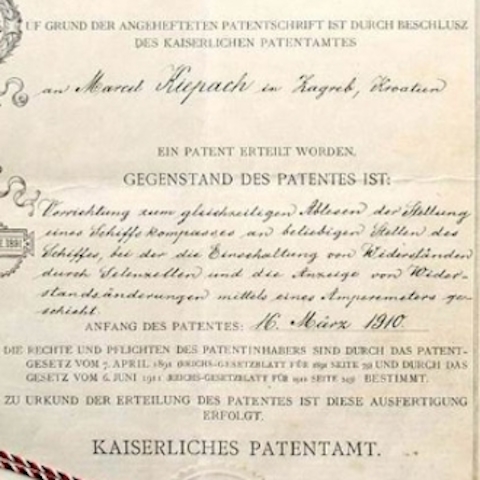 UF GRUND DER ANGEHEFTETEN PATENTSCHRIFT IST DURCH BESCHLUSZ
DES KAISERLICHEN PATENTAMTES
an Marcel Kiepach in Zagreb, Kroatien
EIN PATENT ERTEILT WORDEN.
GEGENSTAND DES PATENTES IST:
Vorrichtung zum gleichzeitigen Ablesen der Stellung
eines Schiffskompasses an beliebigen Stellen des
Schiffes, bei der die Einschaltung von Widerständen
durch Selenzellen und die Anzeige von Wider-
standsänderungen mittels eines Amperemeters ge-
schieht.
ANFANG DES PATENTES: 16. März 1910.
DIE RECHTE UND PFLICHTEN DES PATENTINHABERS SIND DURCH DAS PATENT-
GESETZ VOM 7. APRIL 1891 (REICHS-GESETZBLATT FÜR 1891 SEITE 79) UND DURCH DAS
GESETZ VOM 6. JUNI 1911 (REICHS-GESETZBLATT FÜR 1911 SEITE 243) BESTIMMT.
ZU URKUND DER ERTEILUNG DES PATENTES IST DIESE AUSFERTIGUNG
ERFOLGT.
KAISERLICHES PATENTAMT.